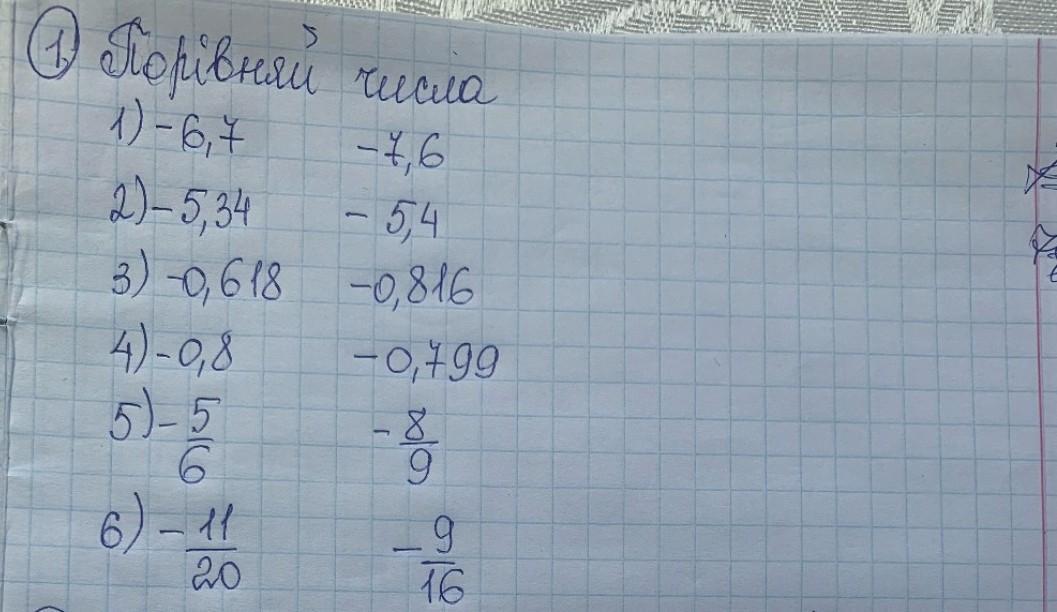 1. Порівняй числа
1) -6,7 -7,6
2) -5,34 - 5,4
3) -0,618 -0,816
4) -0,8 -0,799
5) -5/6 -8/9
6) -11/20 -9/16